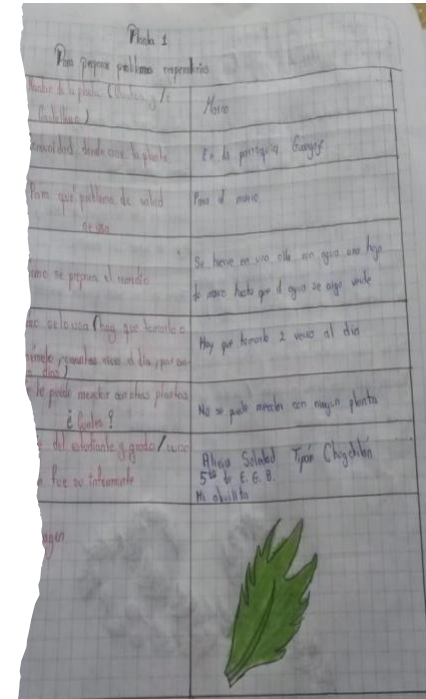 Planta 1
Para preparar problemas respiratorios
Nombre de la planta (Quichua y/o
Castellano)
Marco
Comunidad donde crece la planta
En la parroquia Guangaje
Para qué problema de salud
se usa
Para el
Como se prepara el remedio
Se hierve en una olla con agua una hoja
de marco hasta que el agua se alga verde
se lo usa (hay que tomarlo o
cuantas veces al día, por
días)
Hay que tomarlo 2 veces al día
le puede mezclar con otras plantas
¿Cuales?
No se puede mezclar con ningun planta
del estudiante y grado/curso
fue su informante
Soledad Tipán Chugchilán
5to de E.G.B.
Mi abuelita
agen